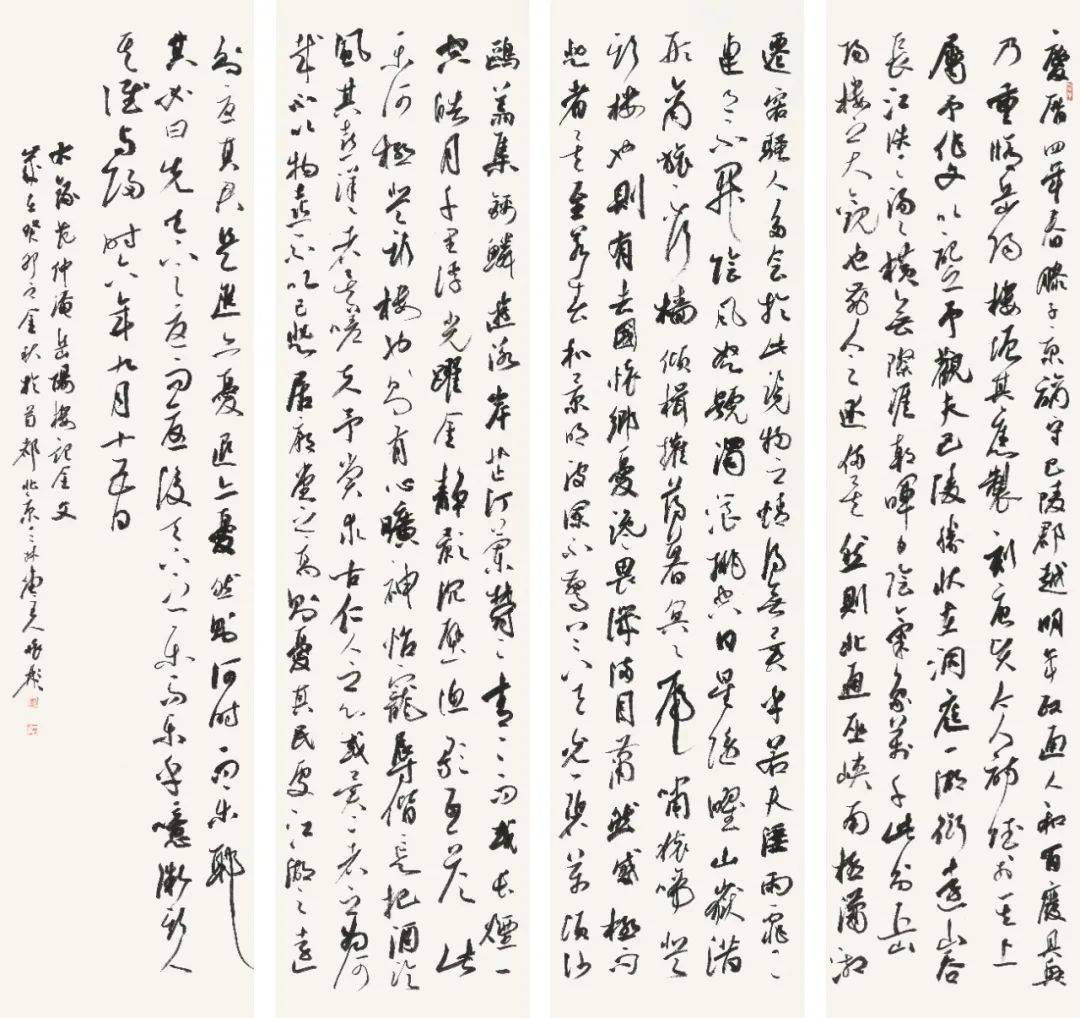 慶曆四年春滕子京謫守巴陵郡越明年政通人和百廢具興
乃重脩岳陽樓增其舊製刻唐賢今人詩賦於其上
屬予作文以記之予觀夫巴陵勝狀在洞庭一湖銜遠山吞
長江浩浩湯湯橫無際涯朝暉夕陰氣象萬千此則岳
陽樓之大觀也前人之述備矣然則北通巫峽南極瀟湘
遷客騷人多會於此覽物之情得無異乎若夫霪雨霏霏
連月不開陰風怒號濁浪排空日星隱曜山嶽潛
形商旅不行檣傾楫摧薄暮冥冥虎嘯猿啼登
斯樓也則有去國懷鄉憂讒畏譏滿目蕭然感極而
悲者矣至若春和景明波瀾不驚上下天光一碧萬頃沙
鷗翔集錦鱗游泳岸芷汀蘭鬱鬱青青而或長煙一
空皓月千里浮光躍金靜影沉璧漁歌互答此
樂何極登斯樓也則有心曠神怡寵辱偕忘把酒臨
風其喜洋洋者矣嗟夫予嘗求古仁人之心或異二者之為何
哉不以物喜不以己悲居廟堂之高則憂其民處江湖之遠
則憂其君是進亦憂退亦憂然則何時而樂耶
其必曰先天下之憂而憂後天下之樂而樂乎噫微斯人
吾誰與歸時六年九月十五日
右錄范仲淹岳陽樓記全文
歲在癸卯之金秋於首都北京